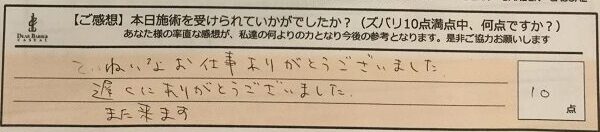 【ご感想】本日施術を受けられていかがでしたか？（ズバリ10点満点中、何点ですか？）
あなた様の率直な感想が、私達の何よりの力となり今後の参考となります。是非ご協力お願いします
DEAR BARBER
ていねいなお仕事ありがとうございました。
遅くにありがとうございました。
また来ます
10
点